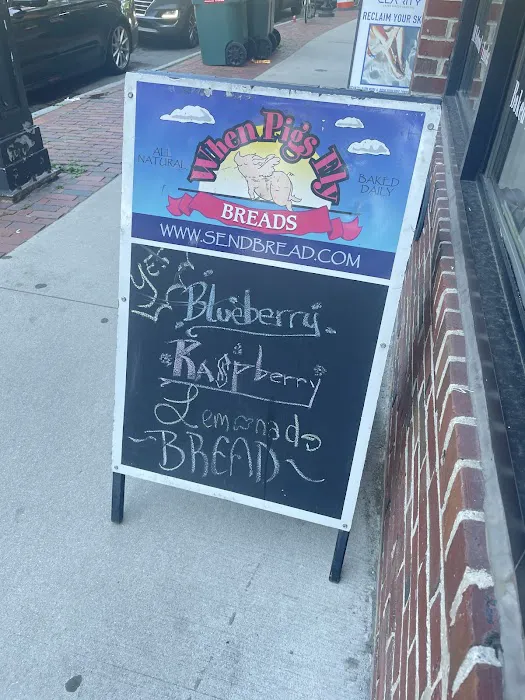 RECLAIM YOUR SK
When Pig's Fly
ALL NATURAL
BAKED DAILY
BREADS
WWW.SENDBREAD.COM
Blueberry
Raspberry
Lemonade
~BREAD~